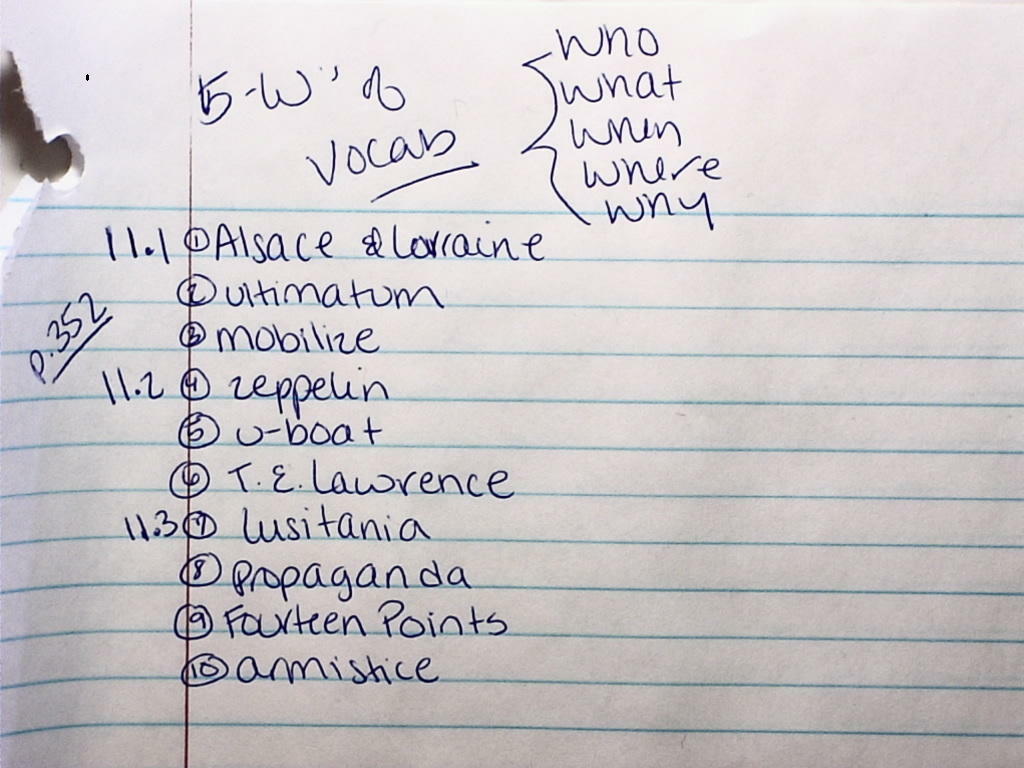 5-W's
Vocab
who
what
when
where
why
11.1 ① Alsace & Lorraine
② ultimatum
③ mobilize
p.352
11.2 ④ zeppelin
⑤ u-boat
⑥ T.E. Lawrence
11.3 ⑦ Lusitania
⑧ propaganda
⑨ Fourteen Points
⑩ armistice